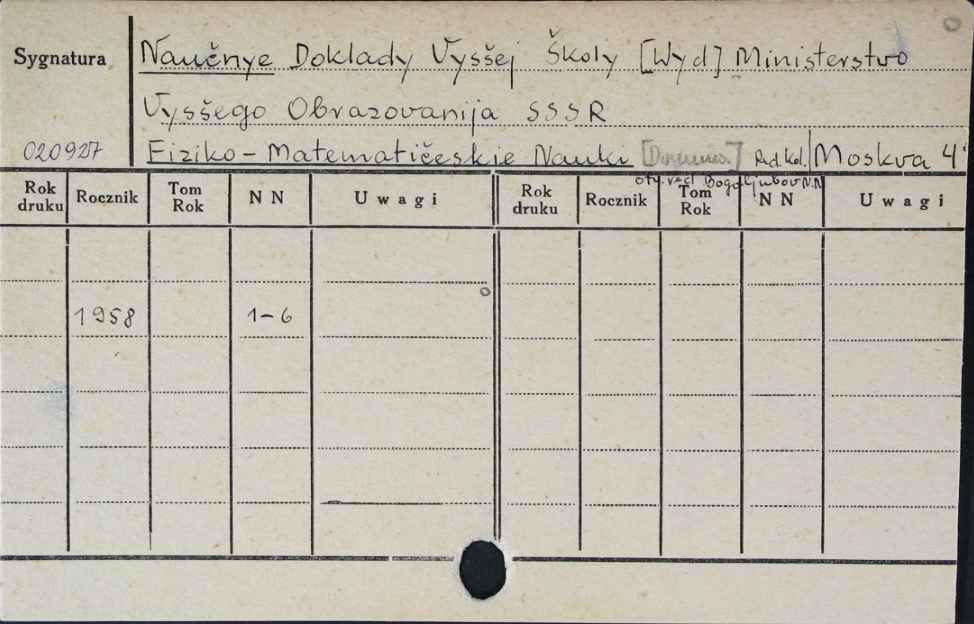 Sygnatura
Naučnye Doklady Vysšej Školy [Wyd] Ministerstvo
Vysšego Obrazovanija SSSR
020927
Fiziko-Matematičeskie Nauki Red. kol. Moskva 4°
otv. red Bogoljubov N.N
Rok druku Rocznik Tom Rok NN Uwagi Rok druku Rocznik Tom Rok NN Uwagi
1958 1-6